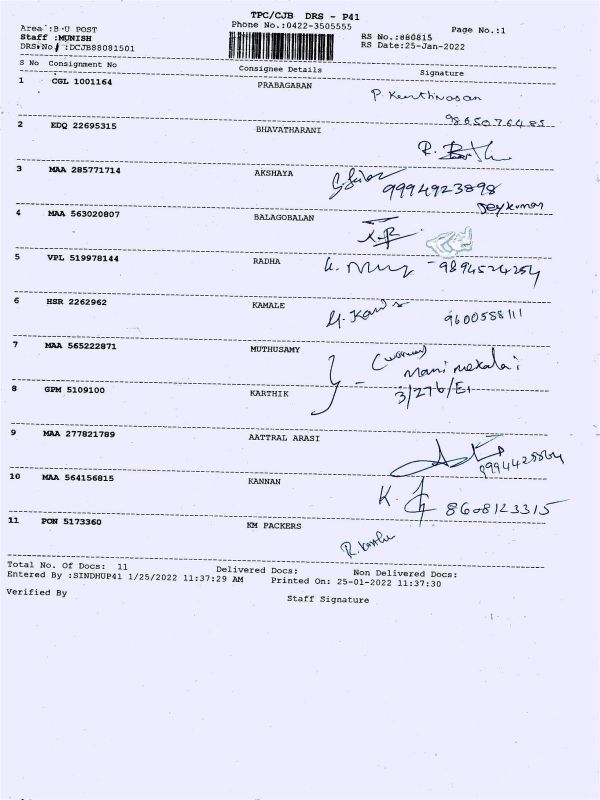 TPC/CJB DRS - P41
Area :B-U POST
Phone No.:0422-3505555
Page No.:1
Staff :MUNISH
RS No.:880815
DRS No :DCJB88081501
RS Date:25-Jan-2022
S No Consignment No Consignee Details Signature
1 CGL 1001164 PRABAGARAN P. Keerthivasan
9865076485
2 EDQ 22695315 BHAVATHARANI
3 MAA 285771714 AKSHAYA 9994923898
4 MAA 563020807 BALAGOBALAN
5 VPL 519978144 RADHA
6 HSR 2262962 KAMALE 9600588111
7 MAA 565222871 MUTHUSAMY Manimekalai
3/276/E1
8 GPM 5109100 KARTHIK
9 MAA 277821789 AATTRAL ARASI
10 MAA 564156815 KANNAN K. 8608123315
11 PON 5173360 KM PACKERS
Total No. Of Docs: 11 Delivered Docs: Non Delivered Docs:
Entered By :SINDHUP41 1/25/2022 11:37:29 AM Printed On: 25-01-2022 11:37:30
Verified By
Staff Signature